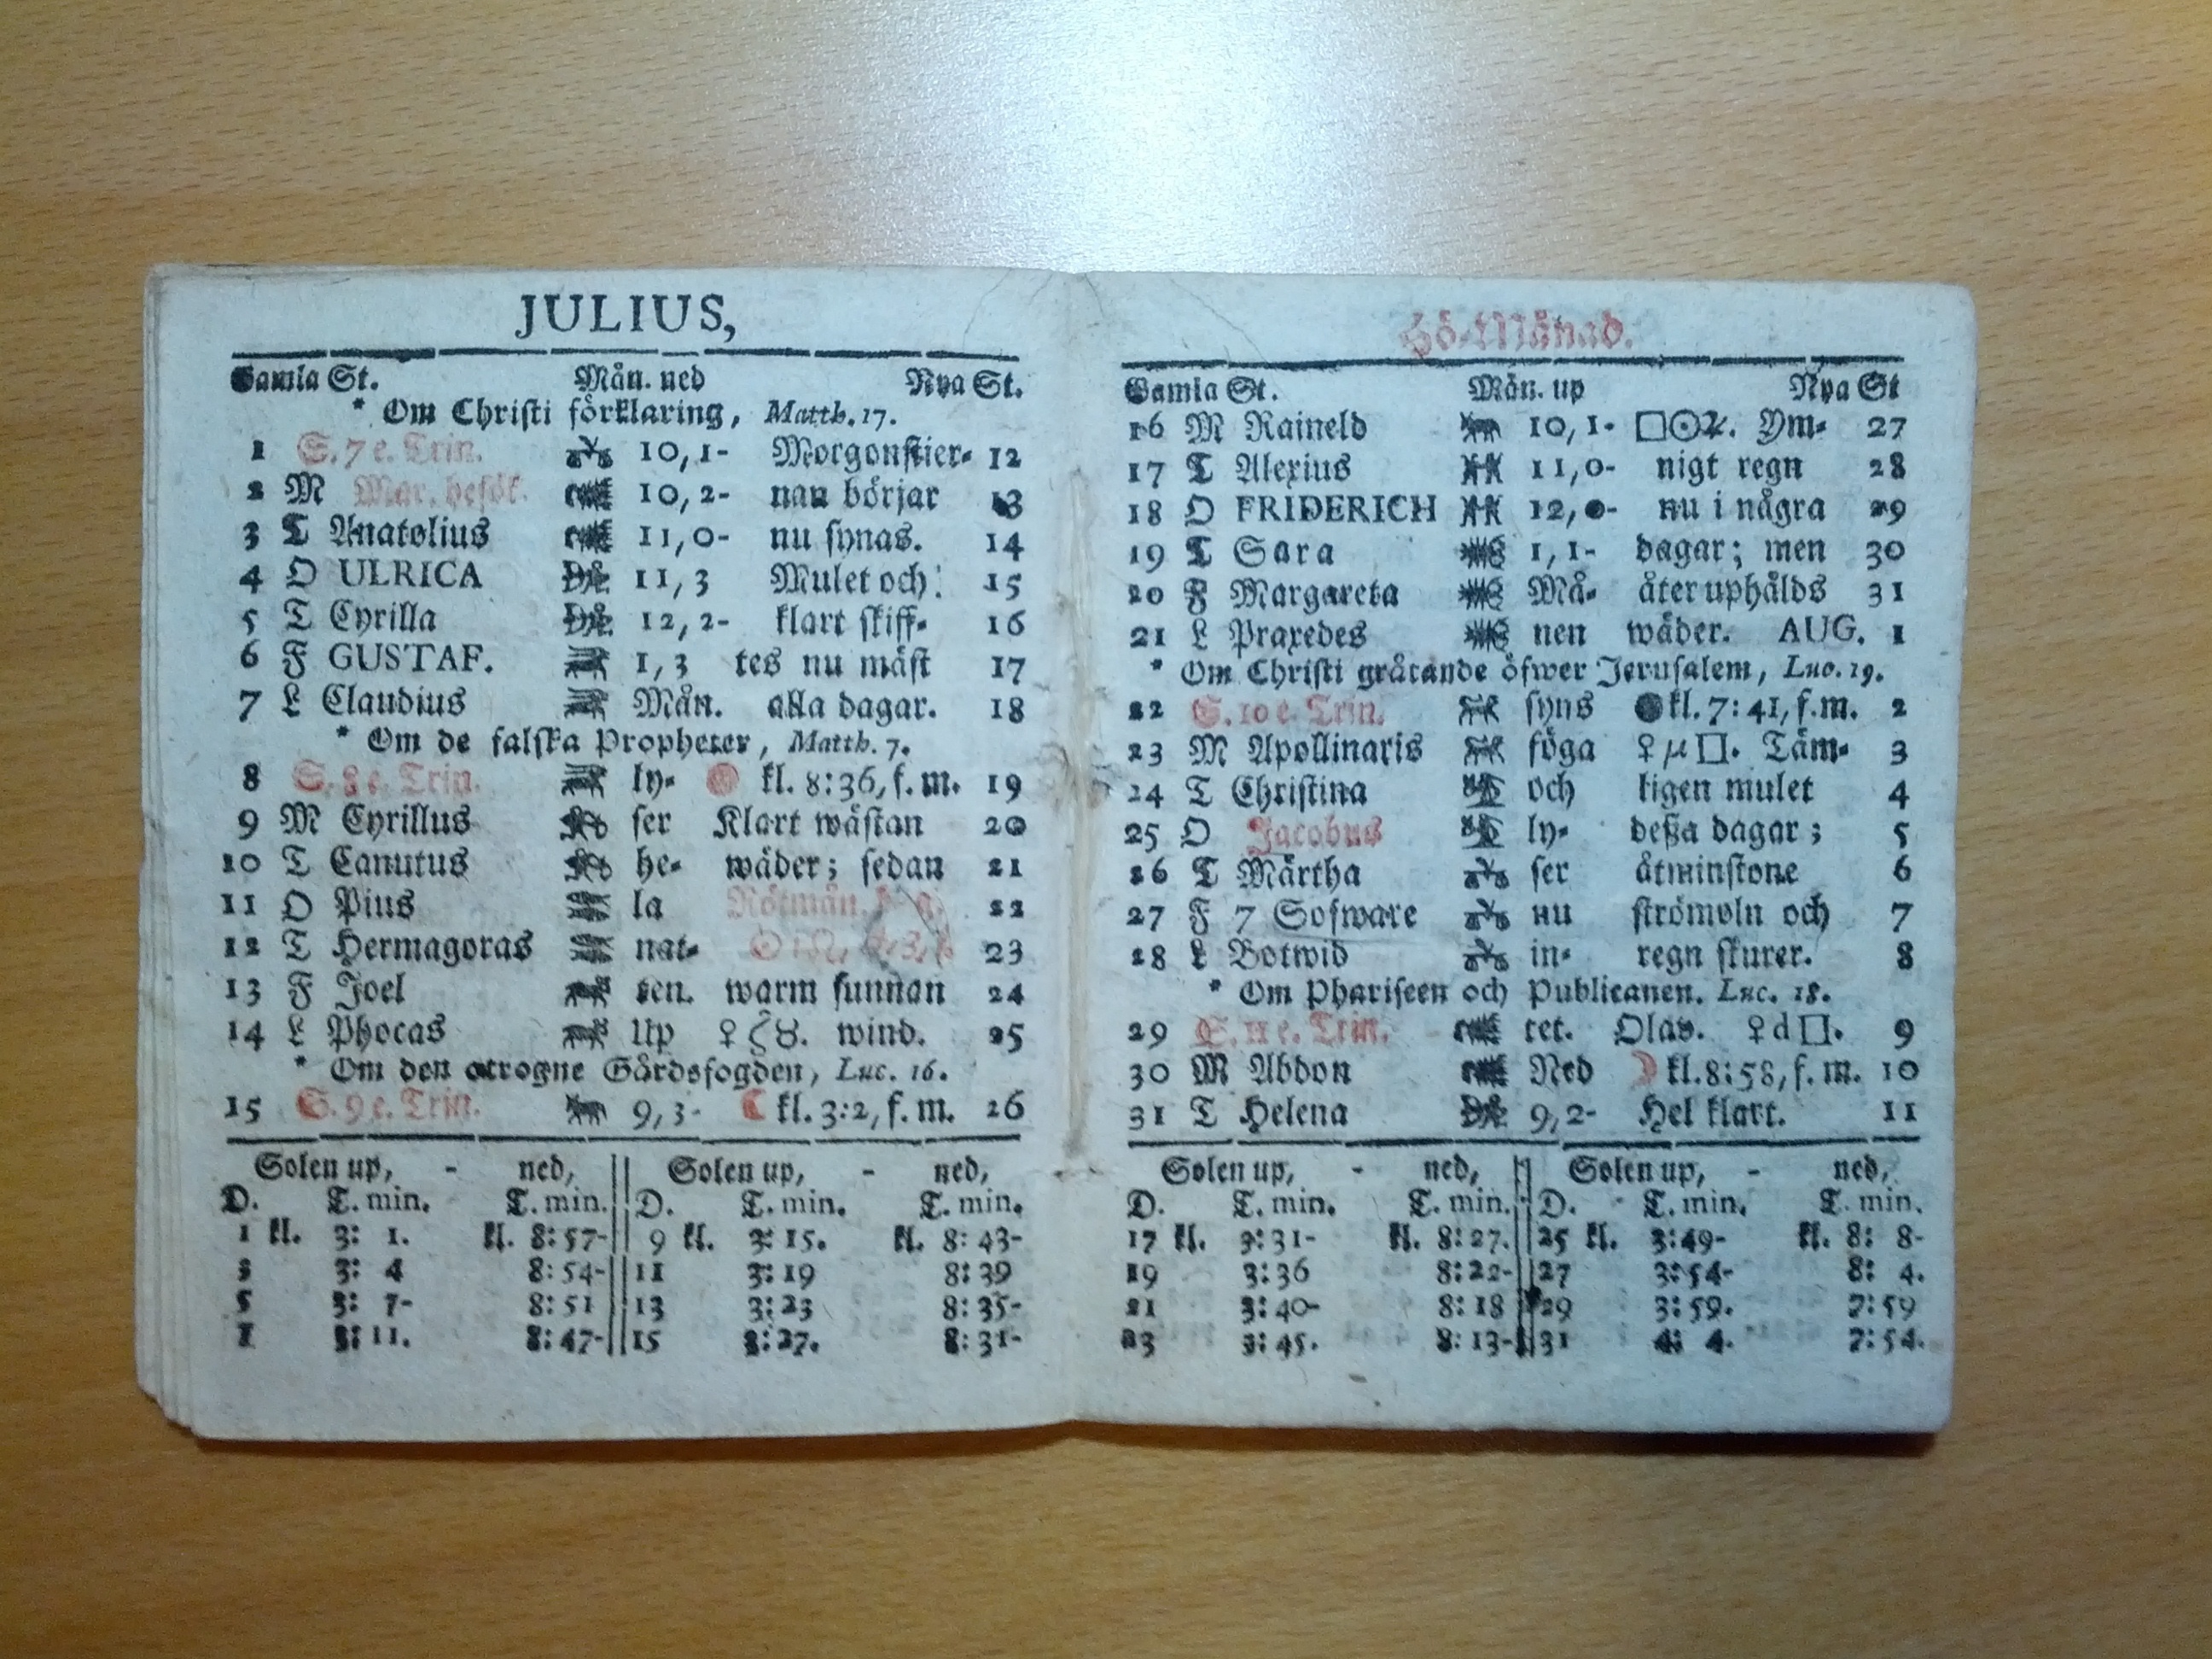 JULIUS,
Gamla St. Mån. ned Nya St.
* Om Christi förklaring, Matth. 17.
1 S. 7 e. Trin. 10, 1- Morgonstier- 12
2 M Mar. besök. 10, 2- nan börjar 13
3 T Anatolius 11, 0- nu synas. 14
4 O ULRICA 11, 3 Mulet och 15
5 T Cyrilla 12, 2- klart skiff- 16
6 F GUSTAF. 1, 3 tes nu mäst 17
7 L Claudius Mån. alla dagar. 18
* Om de falska Propheter, Matth. 7.
8 S. 8 e. Trin. ly- kl. 8:36, f. m. 19
9 M Cyrillus ser Klart wästan 20
10 T Canutus he- wäder; sedan 21
11 O Pius la Rötmån. 22
12 T Hermagoras nat- 23
13 F Joel ten. warm sunnan 24
14 L Phocas Up ♀ ☿. wind. 25
* Om den otrogne Gårdsfogden, Luc. 16.
15 S. 9 e. Trin. 9, 3- ☾ kl. 3:2, f. m. 26
Solen up, - ned, || Solen up, - ned,
D. T. min. T. min. || D. T. min. T. min.
1 kl. 3: 1. kl. 8:57- || 9 kl. 3: 15. kl. 8: 43-
3 3: 4 8:54- || 11 3: 19 8: 39
5 3: 7- 8: 51 || 13 3: 23 8: 35-
7 3: 11. 8: 47- || 15 3: 27. 8: 31-
Hö-Månad.
Gamla St. Mån. up Nya St
16 M Raineld 10, 1- □☉♃. Ym- 27
17 T Alexius 11, 0- nigt regn 28
18 O FRIDERICH 12, 0- nu i några 29
19 T Sara 1, 1- dagar; men 30
20 F Margareta Må- åter uphålds 31
21 L Praxedes nen wäder. AUG. 1
* Om Christi gråtande öfwer Jerusalem, Luc. 19.
22 S. 10 e. Trin. syns ● kl. 7:41, f. m. 2
23 M Apollinaris föga ♀ μ □. Täm- 3
24 T Christina och ligen mulet 4
25 O Jacobus ly- deßa dagar; 5
26 T Märtha ser åtminstone 6
27 F 7 Sofware nu strömoln och 7
28 L Botwid in- regn skurer. 8
* Om Phariseen och Publicanen. Luc. 18.
29 S. 11 e. Trin. tet. Olav. ♀ d □. 9
30 M Abdon Ned ☽ kl. 8:58, f. m. 10
31 T Helena 9, 2- Hel klart. 11
Solen up, - ned, || Solen up, - ned,
D. T. min. T. min. || D. T. min. T. min.
17 kl. 3:31- kl. 8:27. || 25 kl. 3:49- kl. 8: 8-
19 3:36 8:22- || 27 3:54- 8: 4.
21 3:40- 8: 18 || 29 3: 59. 7:59
23 3: 45. 8: 13- || 31 4: 4. 7:54.